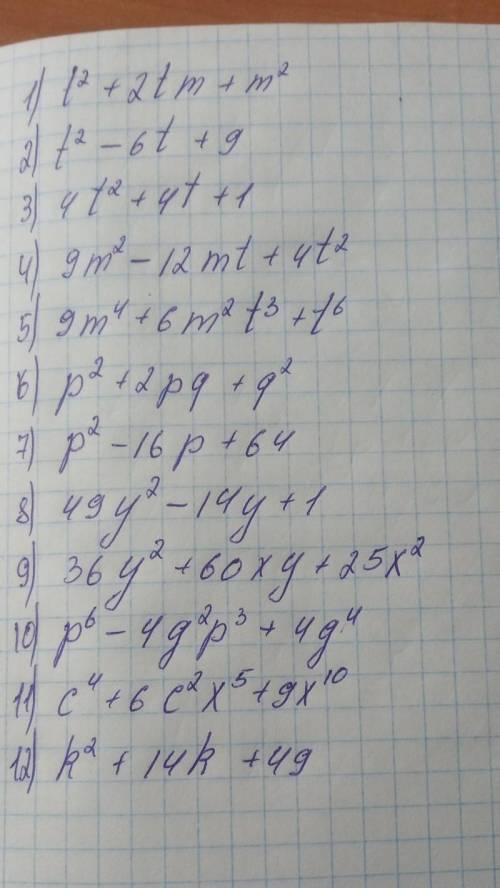 1) t² + 2tm + m²
2) t² - 6t + 9
3) 4t² + 4t + 1
4) 9m² - 12mt + 4t²
5) 9m⁴ + 6m²t³ + t⁶
6) p² + 2pq + q²
7) p² - 16p + 64
8) 49y² - 14y + 1
9) 36y² + 60xy + 25x²
10) p⁶ - 4g²p³ + 4g⁴
11) c⁴ + 6c²x⁵ + 9x¹⁰
12) k² + 14k + 49